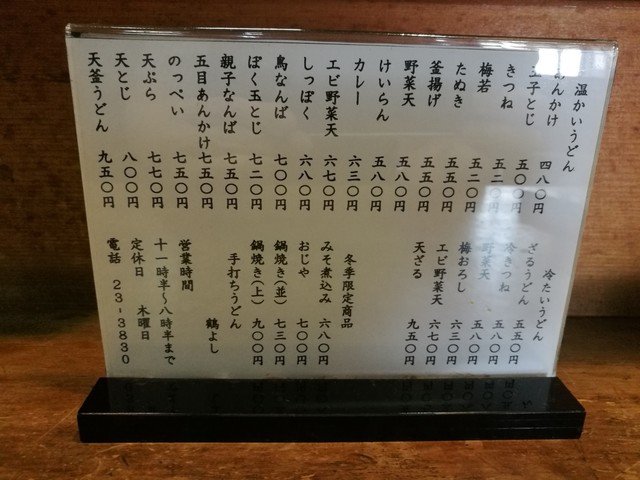 温かいうどん
あんかけ 四八〇円
玉子とじ 五〇〇円
きつね 五二〇円
梅若 五二〇円
たぬき 五五〇円
釜揚げ 五五〇円
野菜天 五八〇円
けいらん 五八〇円
カレー 六三〇円
エビ野菜天 六七〇円
しっぽく 六八〇円
鳥なんば 七〇〇円
ぼく玉とじ 七二〇円
親子なんば 七五〇円
五目あんかけ 七五〇円
のっぺい 七五〇円
天ぷら 七七〇円
天とじ 八〇〇円
天釜うどん 九五〇円
冷たいうどん
ざるうどん 五五〇円
冷きつね 五八〇円
野菜天 五八〇円
梅おろし 六三〇円
エビ野菜天 六七〇円
天ざる 九五〇円
冬季限定商品
みそ煮込み 六八〇円
おじや 七〇〇円
鍋焼き(並) 七三〇円
鍋焼き(上) 九〇〇円
手打ちうどん
鶴よし
営業時間
十一時半～八時半まで
定休日 木曜日
電話 23-3830